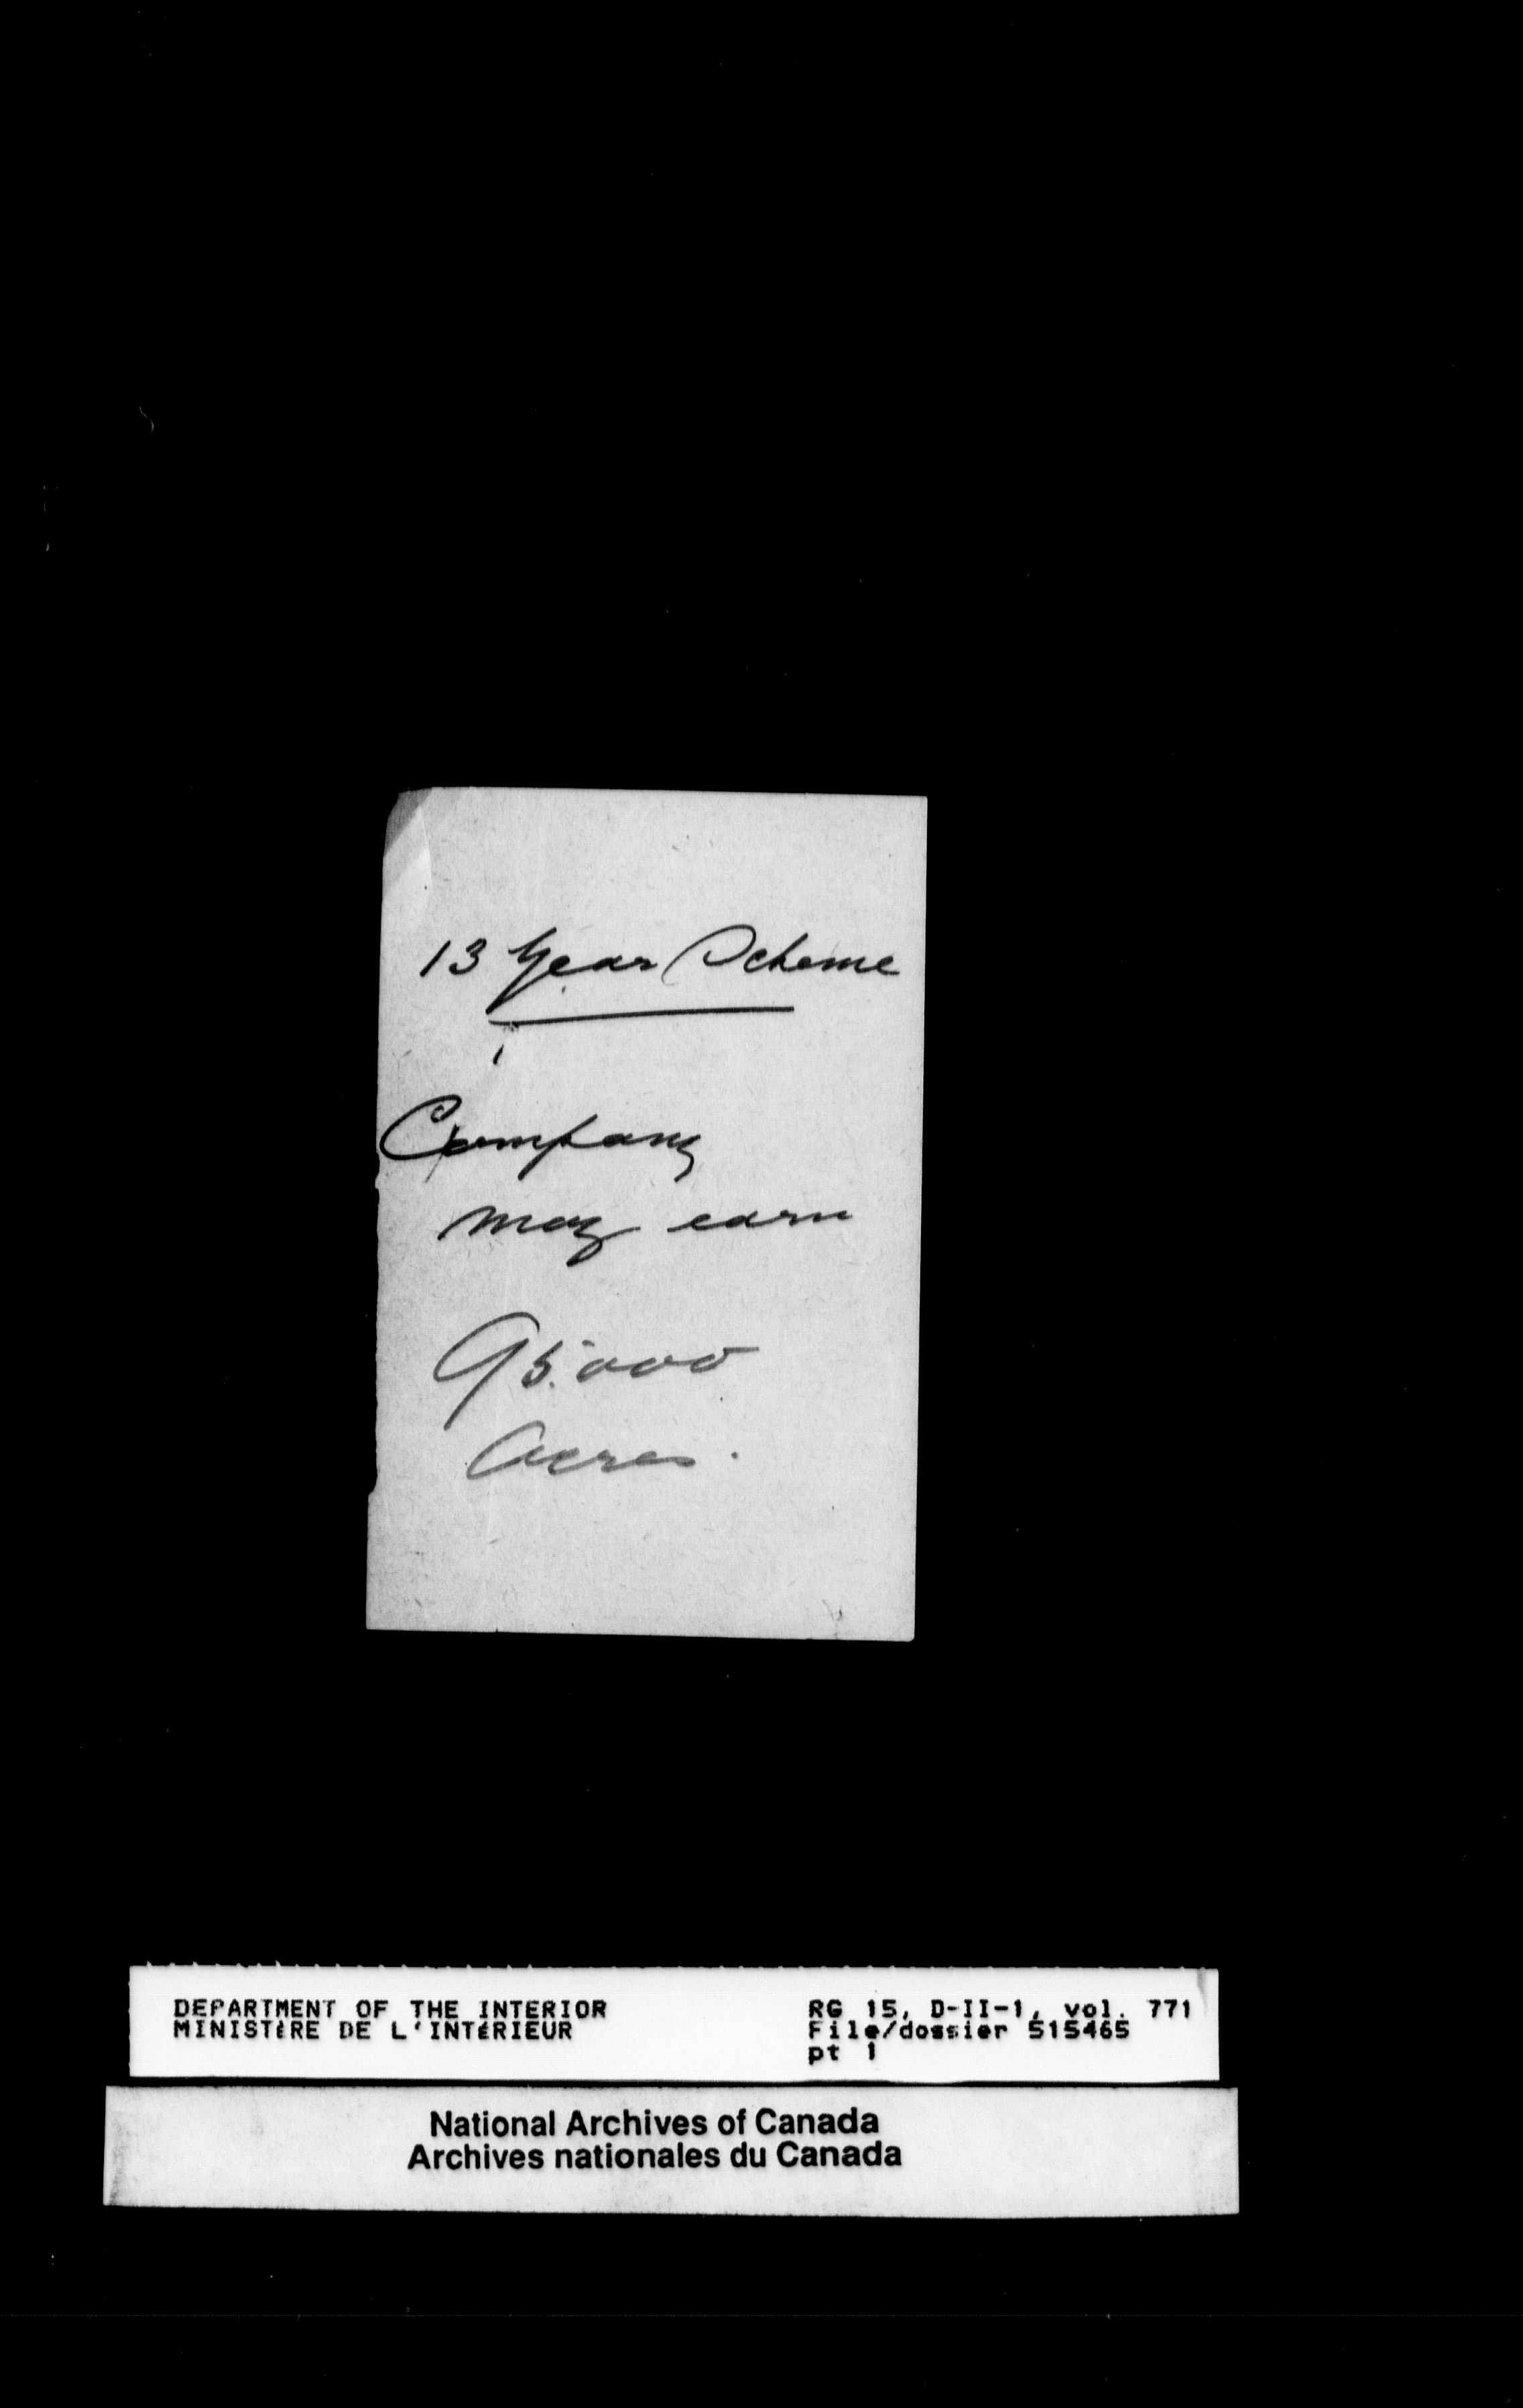 13 Year Scheme
Company
may earn
95.000
Acres.
DEPARTMENT OF THE INTERIOR
MINISTÈRE DE L'INTÉRIEUR
RG 15, D-II-1, vol. 771
File/dossier 515465
pt 1
National Archives of Canada
Archives nationales du Canada